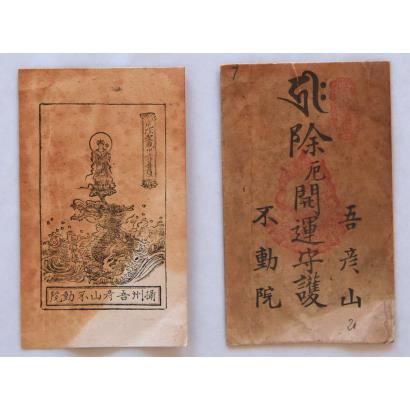 攝州吾彦山不動院
7
吾彦山
除厄開運守護
不動院
21